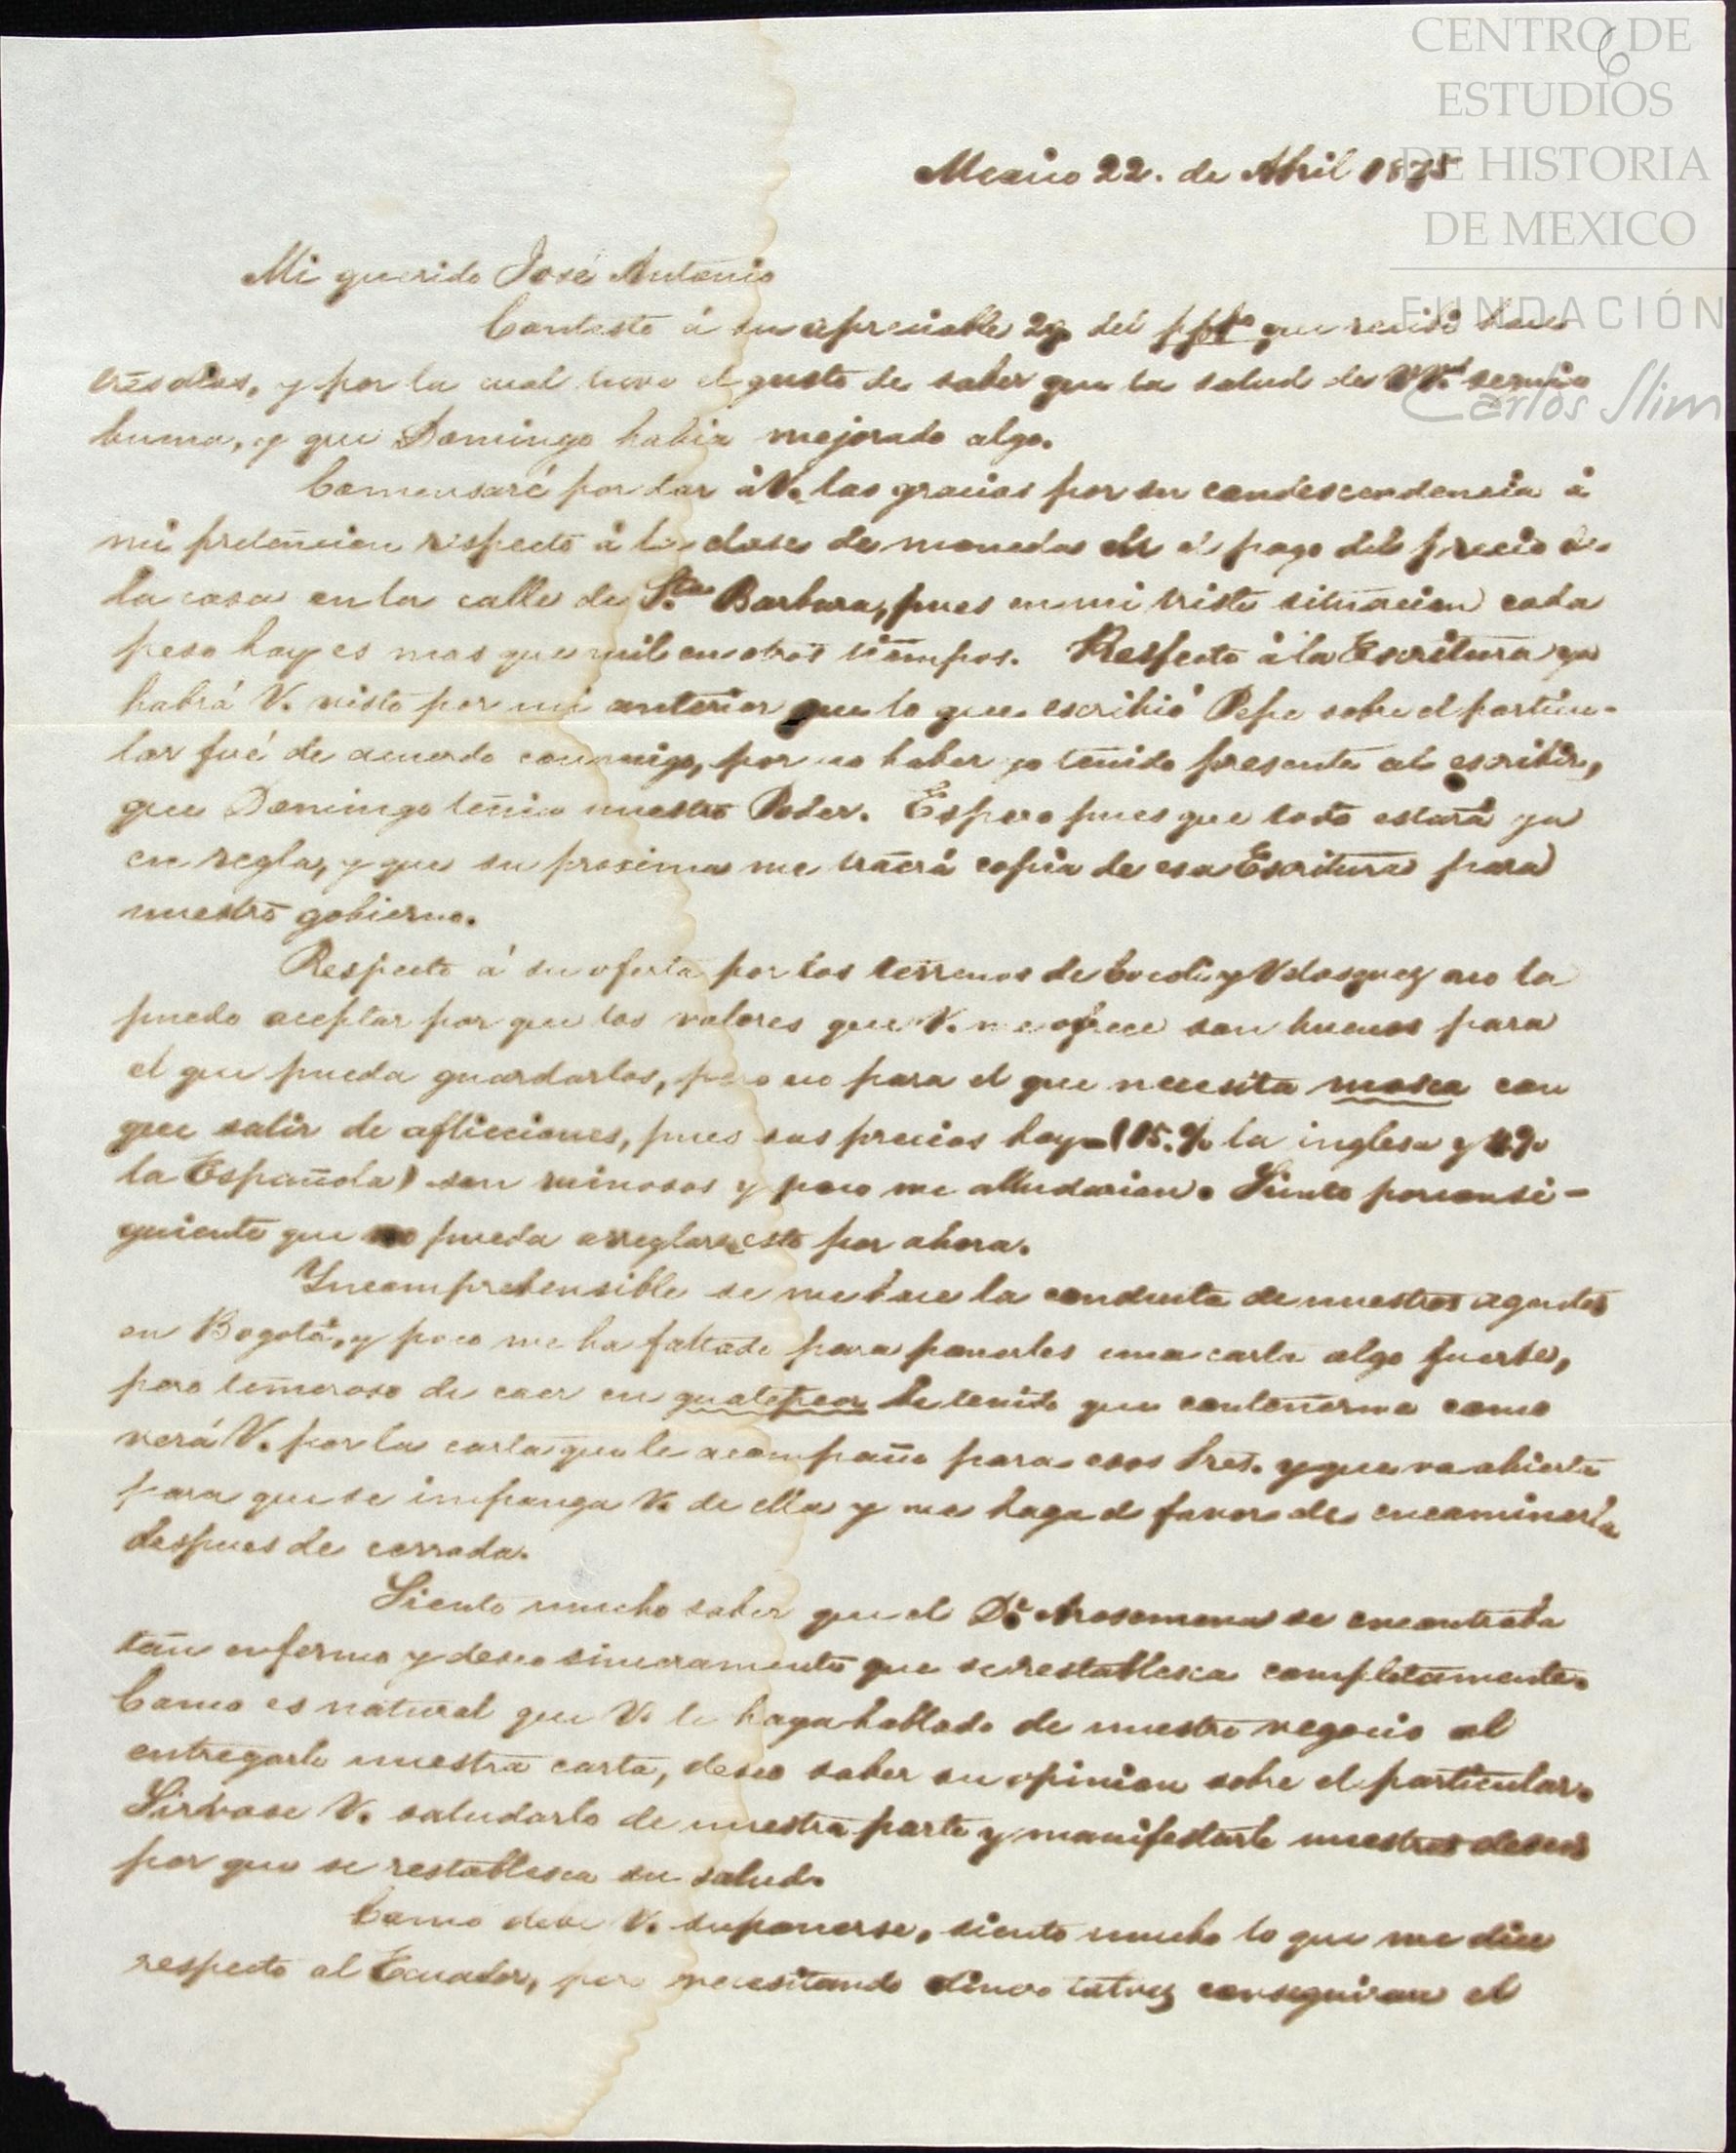 CENTRO DE
ESTUDIOS
DE HISTORIA
DE MEXICO
FUNDACIÓN
Carlos Slim
6
Mexico 22. de Abril 1875
Mi querido José Antonio
Contesto á su apreciable 29 del pp.do que recibí hace
tres dias, y por la cual tuve el gusto de saber que la salud de VV. seguia
buena, y que Domingo habia mejorado algo.
Comensaré por dar á V. las gracias por su condescendencia á
mi pretencion respecto á la clase de monedas de el pago del precio de
la casa en la calle de Sta. Barbara, pues en mi triste situacion cada
peso hoy es mas que mil en otros tiempos. Respecto á la Escritura ya
habrá V. visto por mi anterior que lo que escribió Pepe sobre el particu-
lar fué de acuerdo conmigo, por no haber yo tenido presente al escribir,
que Domingo tenia nuestro Poder. Espero pues que todo estará ya
en regla, y que su proxima me traerá copia de esa Escritura para
nuestro gobierno.
Respecto á su oferta por los terrenos de y Velasquez no la
puedo aceptar por que los valores que V. me ofrece son buenos para
el que pueda guardarlos, pero no para el que necesita mosca con
que salir de aflicciones, pues sus precios hoy (15.% la inglesa y 4%
la Española) son ruinosos y poco me alludarian. Siento porconsi-
guiente que no pueda arreglarse esto por ahora.
Yncomprehensible se me hace la conducta de nuestros agentes
en Bogotá, y poco me ha faltado para ponerles una carta algo fuerte,
pero temeroso de caer en guatepeor he tenido que contenerme como
verá V. por la carta que le acompaño para esos Sres. y que va abierta
para que se imponga V. de ella y me haga el favor de encaminarla
despues de cerrada.
Siento mucho saber que el Dr. Arosemena se encontraba
tan enfermo y deseo sinceramente que se restablesca completamente.
Como es natural que V. le haya hablado de nuestro negocio al
entregarle nuestra carta, deseo saber su opinion sobre el particular.
Sirvase V. saludarlo de nuestra parte y manifestarle nuestros deseos
por que se restablesca su salud.
Como debe V. suponerse, siento mucho lo que me dice
respecto al Ecuador, pero necesitando dinero talvez conseguiran el